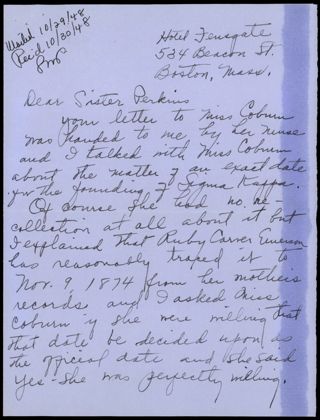 Mailed 10/29/48
Rec'd 10/30/48
Hotel Fensgate
534 Beacon St.
Boston, Mass.
Dear Sister Perkins
Your letter to Miss Coburn
was handed to me by her nurse
and I talked with Miss Coburn
about the matter of an exact date
for the founding of Sigma Kappa.
Of course she had no re-
collection at all about it but
I explained that Ruby Carver Emerson
has reasonably traped it to
Nov. 9, 1874 from her mothers
records and I asked Miss
Coburn if she were willing that
that date be decided upon as
the official date and she said
yes - she was perfectly willing.